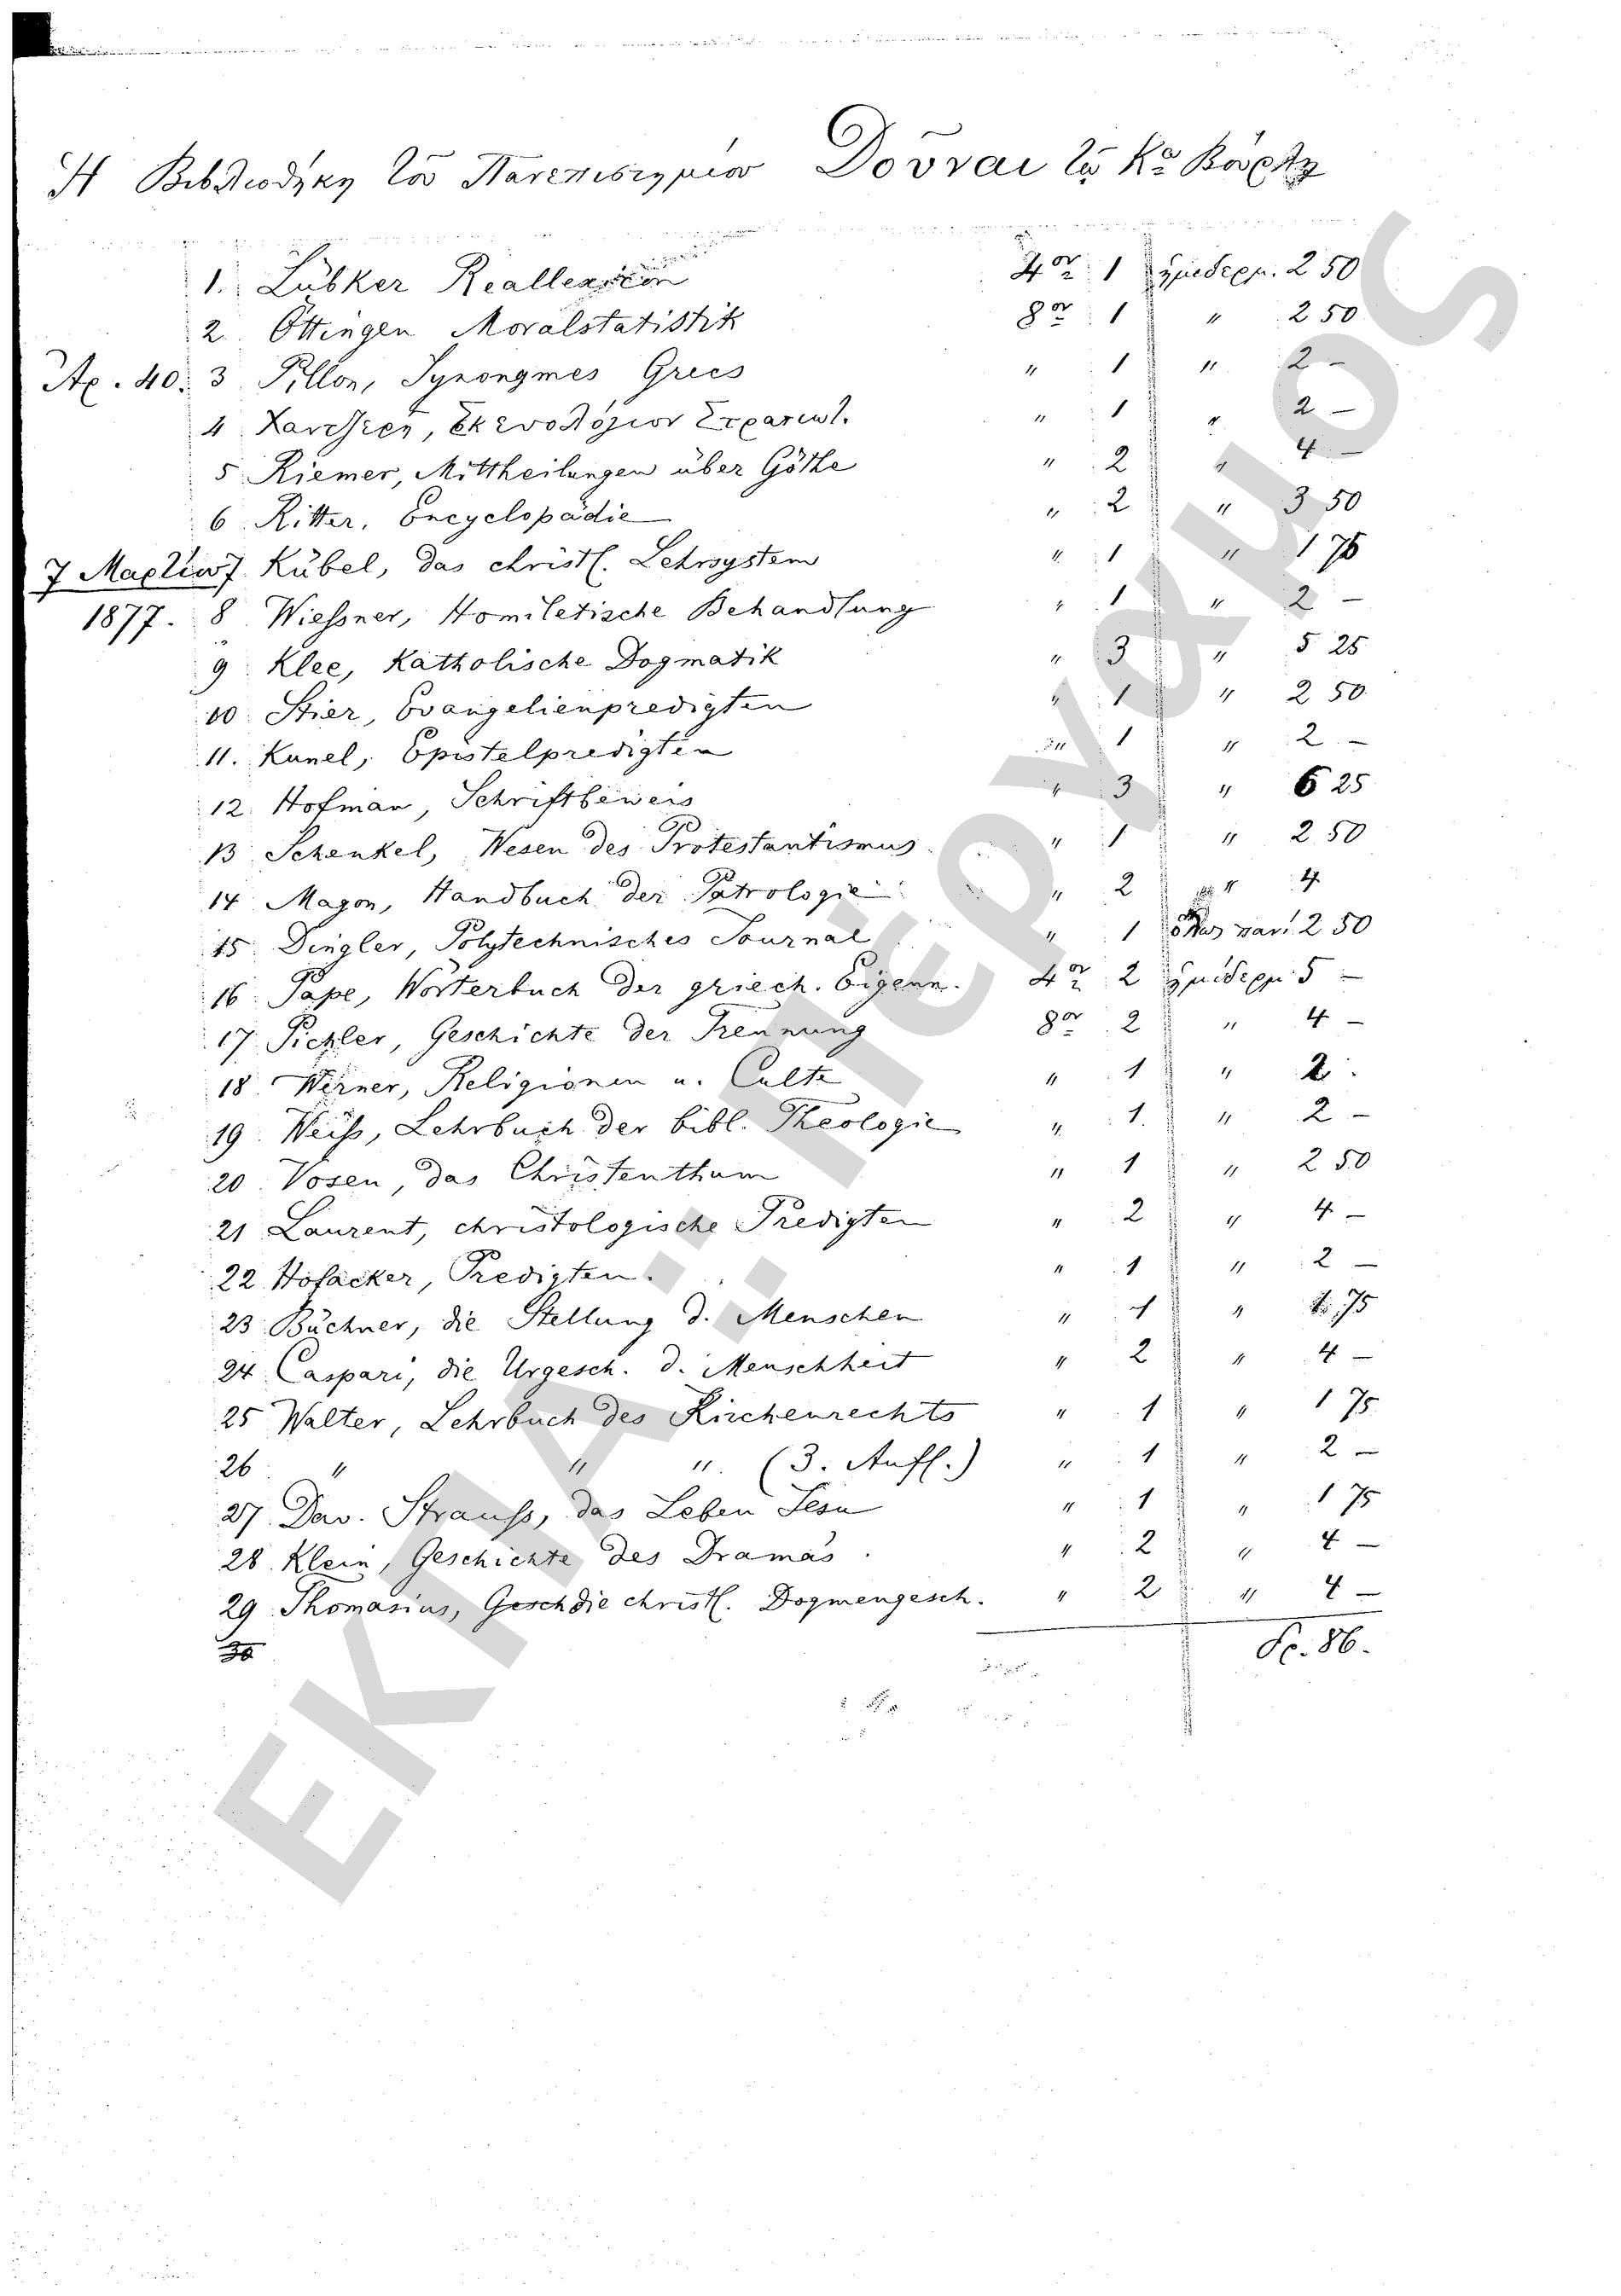 Η Βιβλιοθήκη του Πανεπιστημίου Δούναι τω Κω Βάρτη
1. Lübker Reallexicon 4ον 1 ημιδερμ. 2 50
2. Öttingen Moralstatistik 8ον 1 " 2 50
Αρ. 40. 3 Pillon, Synonymes Grecs " 1 " 2 –
4 Ξανθίππη, Στρατιωτ. " 1 " 2 –
5 Riemer, Mittheilungen über Göthe " 2 " 4 –
6. Ritter, Encyclopädie " 2 " 3 50
7 Μαρτίου 7. Kübel, das christl. Lehrsystem " 1 " 1 75
1877. 8 Wiessner, Homiletische Behandlung " 1 " 2 –
9. Klee, Katholische Dogmatik " 3 " 5 25
10. Stier, Evangelienpredigten " 1 " 2 50
11. Kunel, Epistelpredigten " 1 " 2 –
12. Hofman, Schriftbeweis " 3 " 6 25
13 Schenkel, Wesen des Protestantismus " 1 " 2 50
14 Magon, Handbuch der Patrologie " 2 " 4
15. Dingler, Polytechnisches Journal " 1 όλος παν. 2 50
16. Pape, Wörterbuch der griech. Eigenn. 4ον 2 ημιδερμ. 5 –
17. Pichler, Geschichte der Trennung 8ον 2 " 4 –
18. Werner, Religionen u. Culte " 1 " 2.
19. Weiß, Lehrbuch der bibl. Theologie " 1. " 2 –
20. Vosen, das Christenthum " 1 " 2 50
21 Laurent, christologische Predigten " 2 " 4 –
22 Hofacker, Predigten. " 1 " 2 –
23. Büchner, die Stellung d. Menschen " 1 " 1 75
24 Caspari, die Urgesch. d. Menschheit " 2 " 4 –
25 Walter, Lehrbuch des Kirchenrechts " 1 " 1 75
26. " " " (3. Aufl.) " 1 " 2 –
27. Dav. Strauß, das Leben Jesu " 1 " 1 75
28. Klein, Geschichte des Dramas. " 2 " 4 –
29. Thomasius, Gesch die christl. Dogmengesch. " 2 " 4 –
30 Δρ. 86.
ΕΚΠΑ: Πέργαμος